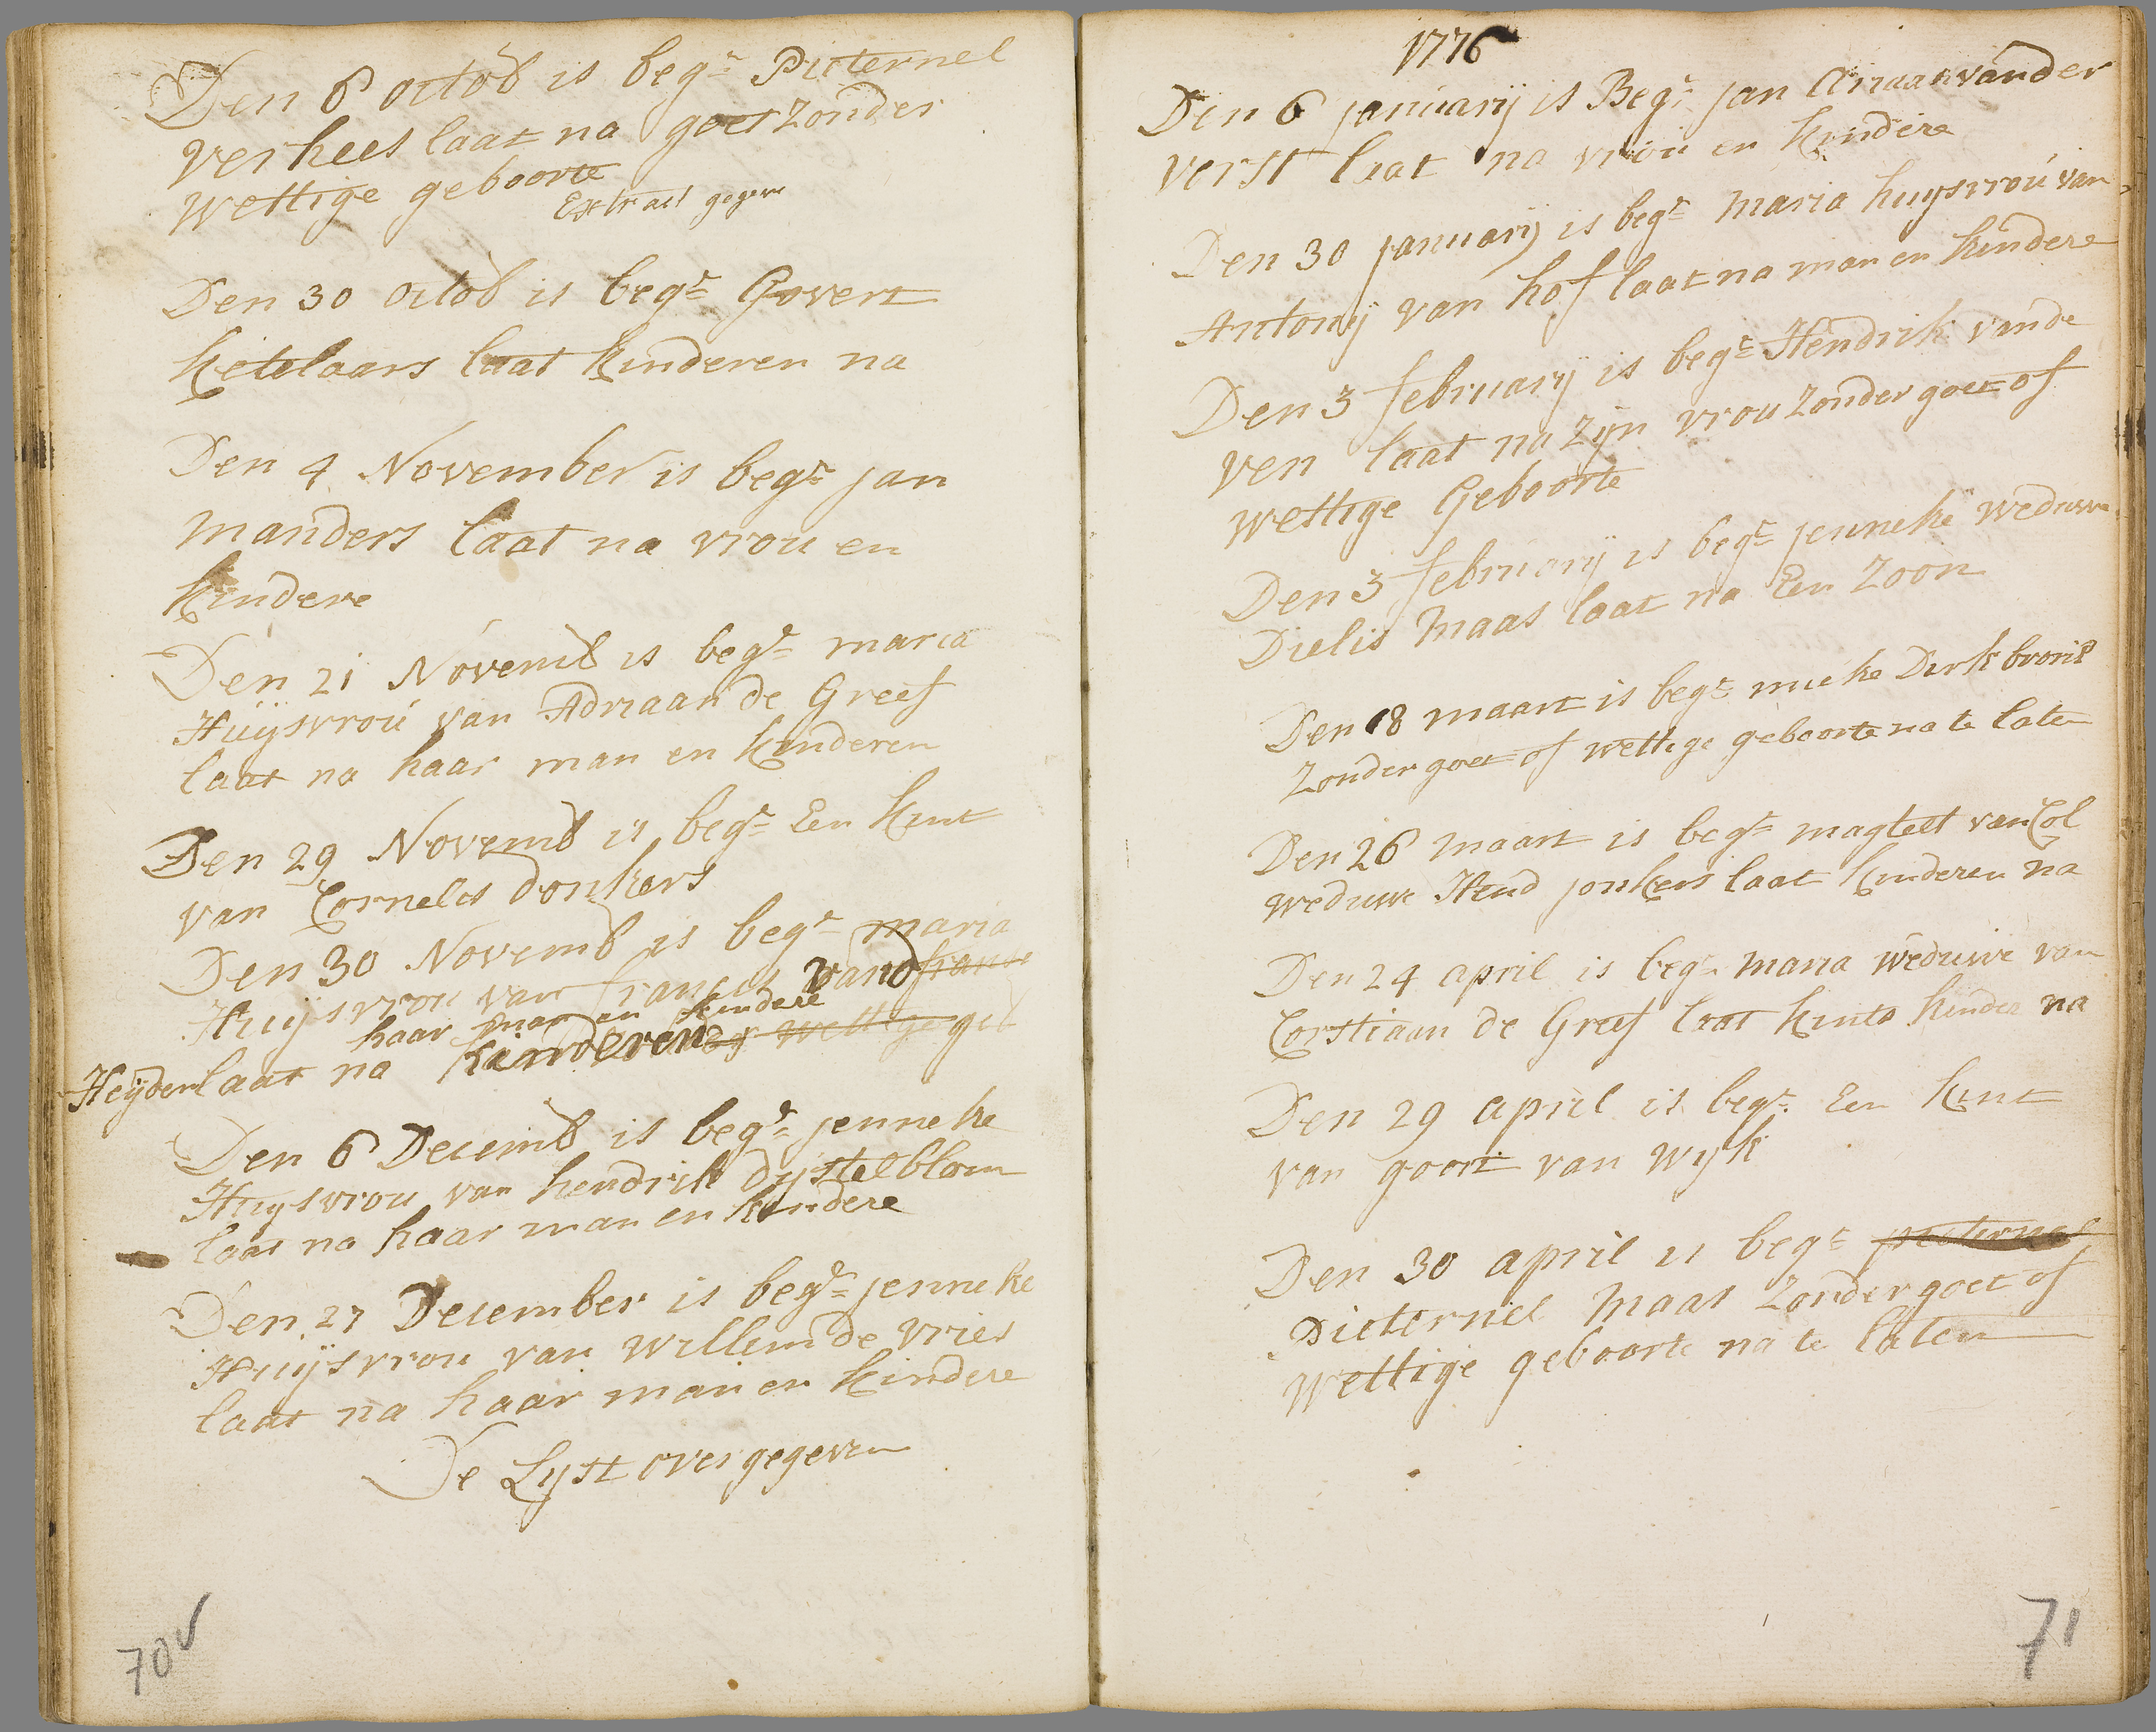 Den 6 octob is begr Pieternel
Verhees laat na goet zonder
Wettige geboorte
Extract gegeve
Den 30 octob is begr Govert
Ketelaars laat kinderen na
Den 4 November is begr jan
manders laat na vrou en
kindere
Den 21 Novemb is begr maria
Huijsvrou van Adriaan de Greef
laat na haar man en kinderen
Den 29 Novemb is begr Een kint
van Cornelis donkers
Den 30 Novemb is begr maria
Huijsvrou van francis vand
haar man en kindere
Heijden laat na kinderen of wettige geb
Den 6 Decemb is begr jenneke
Huysvrou van hendrik dystelblom
laat na haar man en kindere
Den 27 December is begr jenneke
Huijsvrou van willem de vries
laat na haar man en kindere
De Lyst overgegeven
70v
1776
Den 6 januarij is Begr jan Ariaan vander
Vorst laat na vrou en kindere
Den 30 januarij is begr maria huysvrou van
Antonij van hof laat na man en kindere
Den 3 februarij is begr Hendrik vande
Ven laat na zijn vrou zonder goet of
wettige Geboorte
Den 3 februarij is begr jenneke weduwe
Dielis maas laat na Een zoon
Den 18 maart is begr mieke Dirk
zonder goet of wettige geboorte na te laten
Den 26 maart is begr magteld van Col
weduwe Hend jonkers laat kinderen na
Den 24 april is begr maria weduwe van
Corstiaan de Greef laat kints kinder na
Den 29 april is begr Een kint
van goort van Wyk
Den 30 april is begr pieternel
Pieternel maas zonder goet of
wettige geboorte na te laten
71